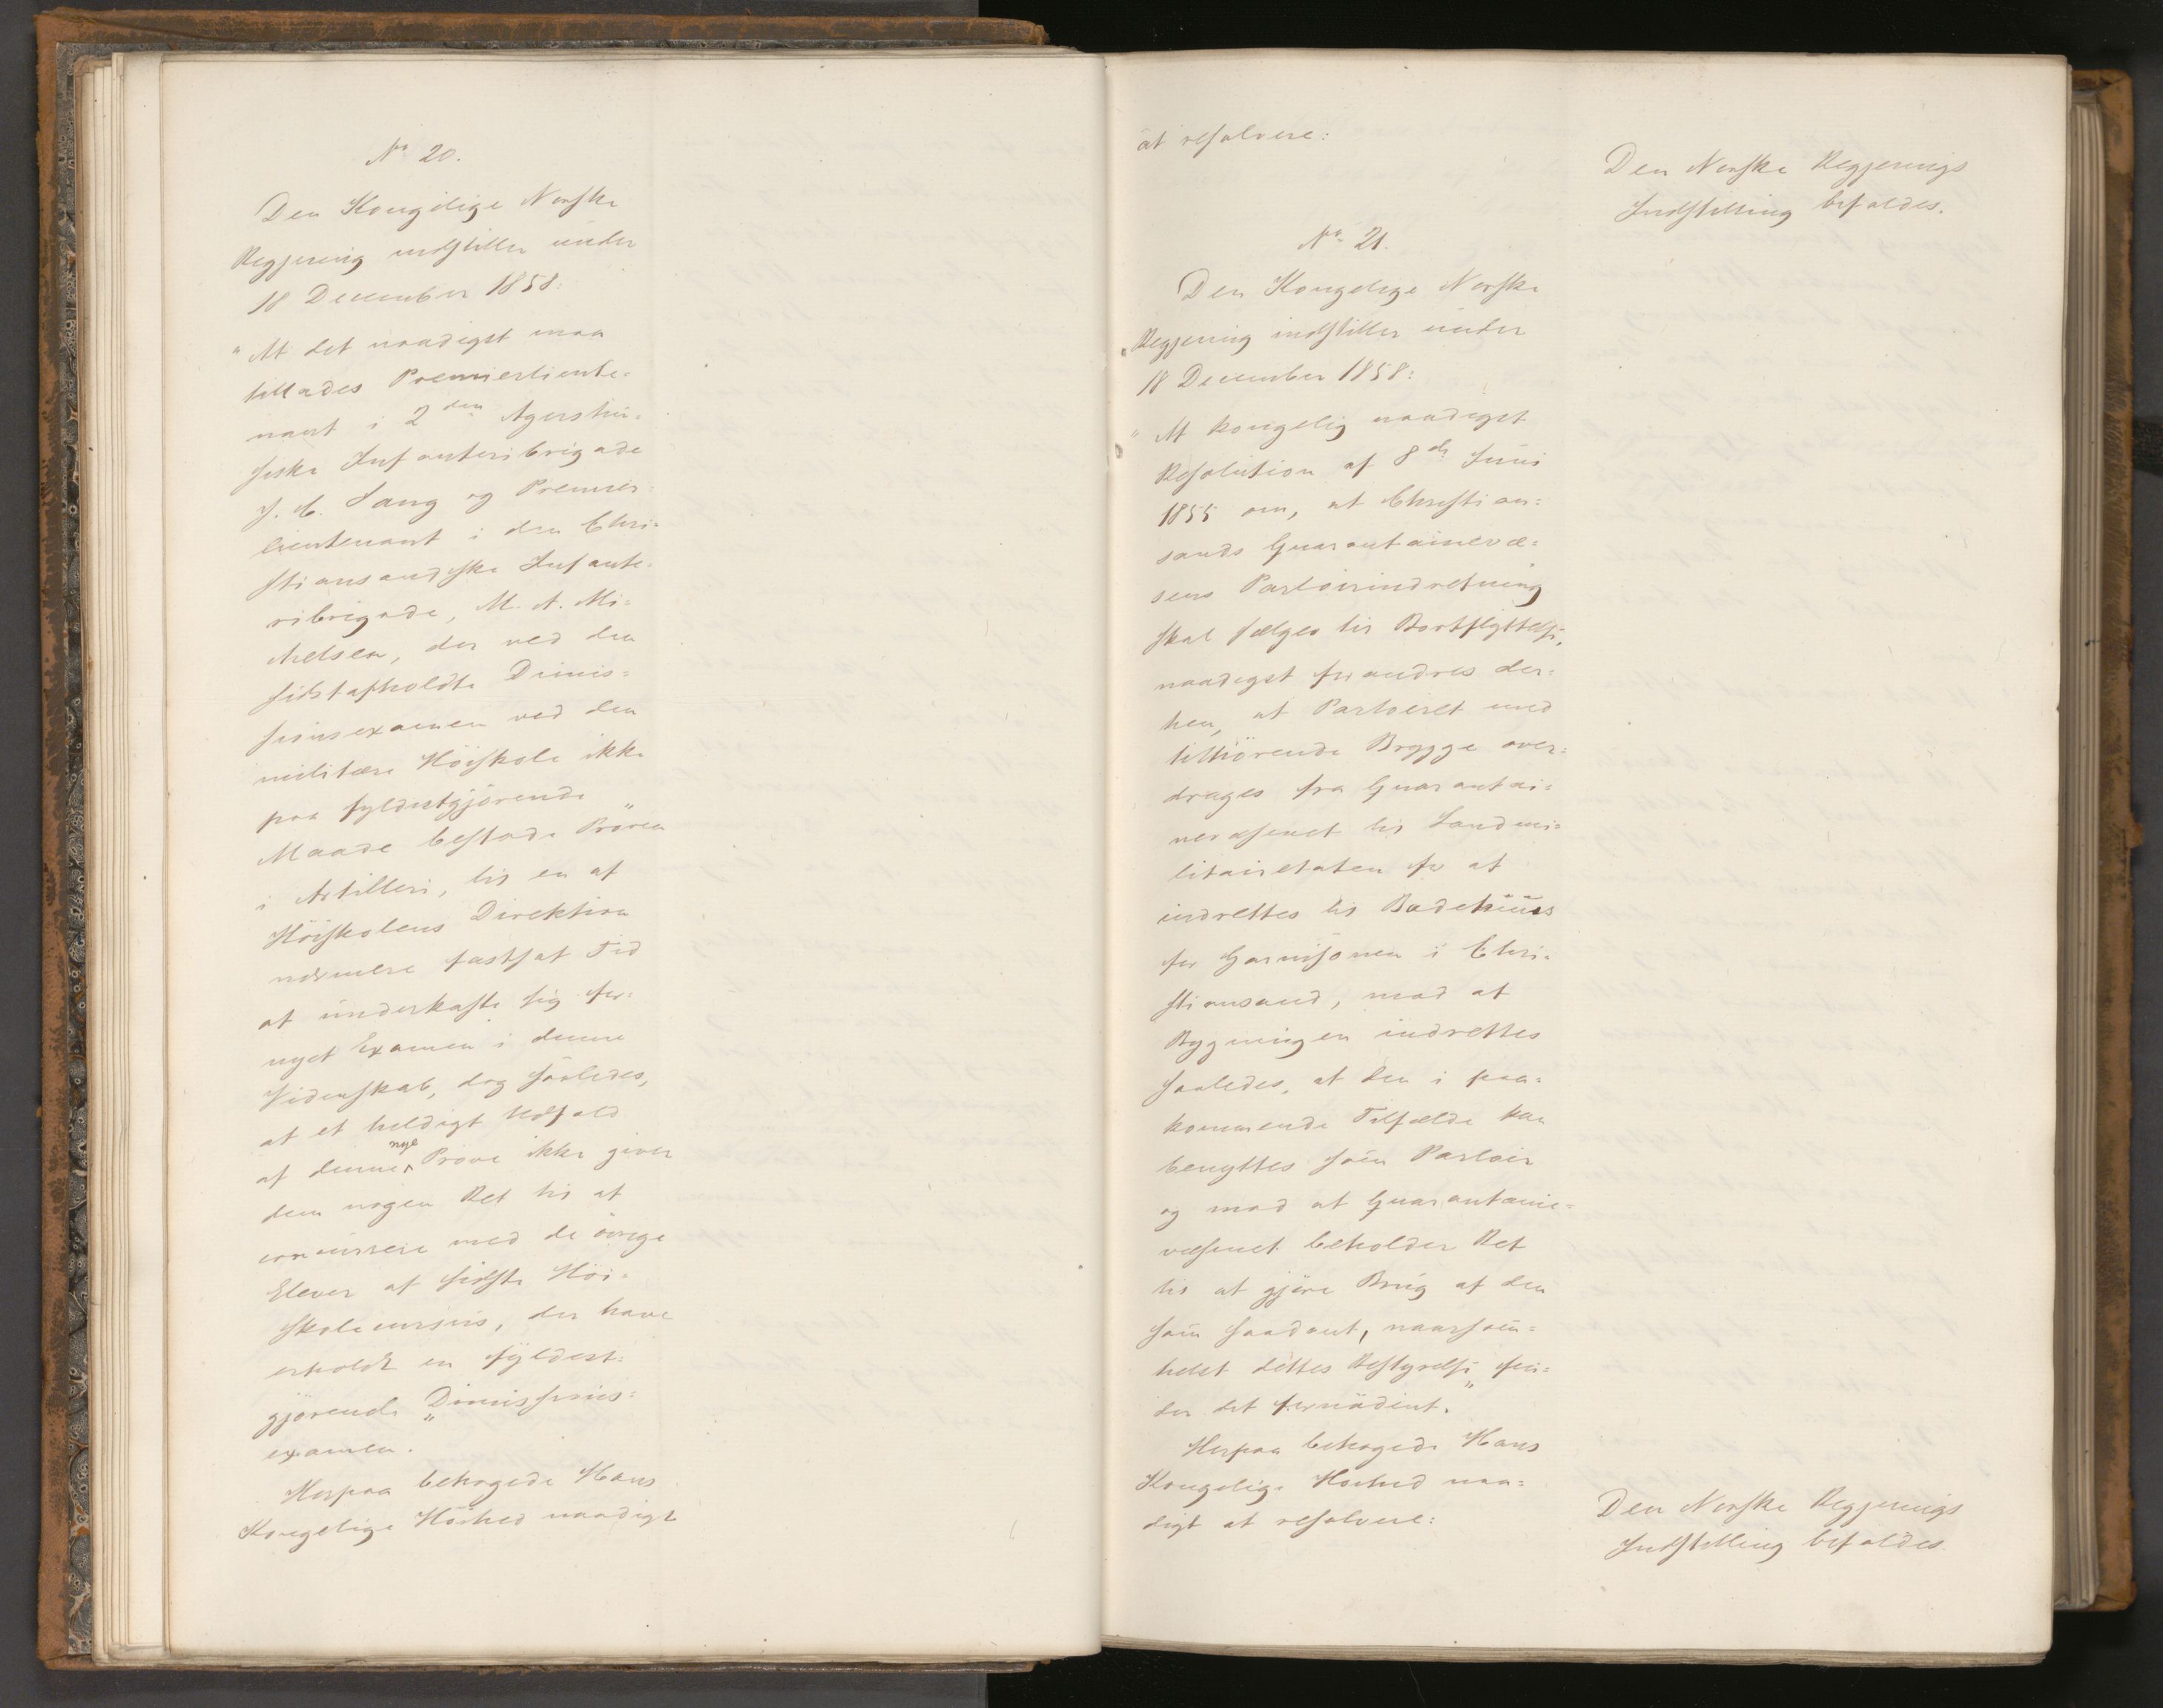 No 20.
Den Kongelige Norske
Regjering indstiller under
18 December 1858:
"At det naadigst maa
tillades Premierlieute-
nant i 2den Agershu-
siske Infanteribrigade
J. C. Lang og Premier-
lieutenant i den Chri-
stiansandske Infante-
ribrigade, M. A. Mi-
chelsen, der ved den
sidst afholdte Dimis-
sionsexamen ved den
militære Höiskole ikke
paa fyldestgjörende
Maade bestode Pröven
i Artilleri, til en af
Höiskolens Direktion
nærmere fastsat Tid
at underkaste sig for-
nyet Examen i denne
Videnskab, dog saaledes,
at et heldigt Udfald
af denne nye Pröve ikke giver
dem nogen Ret til at
concurrere med de övrige
Elever af sidste Höi-
skolecursus, der have
erholdt en fyldest-
gjörende Dimissions-
examen."
Herpaa behagede Hans
Kongelige Höihed naadigst
at resolvere:
Den Norske Regjerings
Indstilling bifaldes.
No 21.
Den Kongelige Norske
Regjering indstiller under
18 December 1858:
"At kongelig naadigst
Resolution af 8de Juni
1855 om, at Christian-
sands Quarantainevæ-
sens Parloirindretning
skal sælges til Bortflyttelse,
naadigst forandres der-
hen, at Parloiret med
tilhörende Brygge over-
drages fra Quarantai-
nevæsenet til Landmi-
litairetaten for at
indrettes til Badehuus
for Garnisonen i Chri-
stiansand, mod at
Bygningen indrettes
saaledes, at den i paa-
kommende Tilfælde kan
benyttes som Parloir
og mod at Quarantaine-
væsenet beholder Ret
til at gjöre Brug af den
som saadant, naarsom-
helst dettes Bestyrelse fin-
der det fornödent."
Herpaa behagede Hans
Kongelige Höihed naa-
digst at resolvere:
Den Norske Regjerings
Indstilling bifaldes.